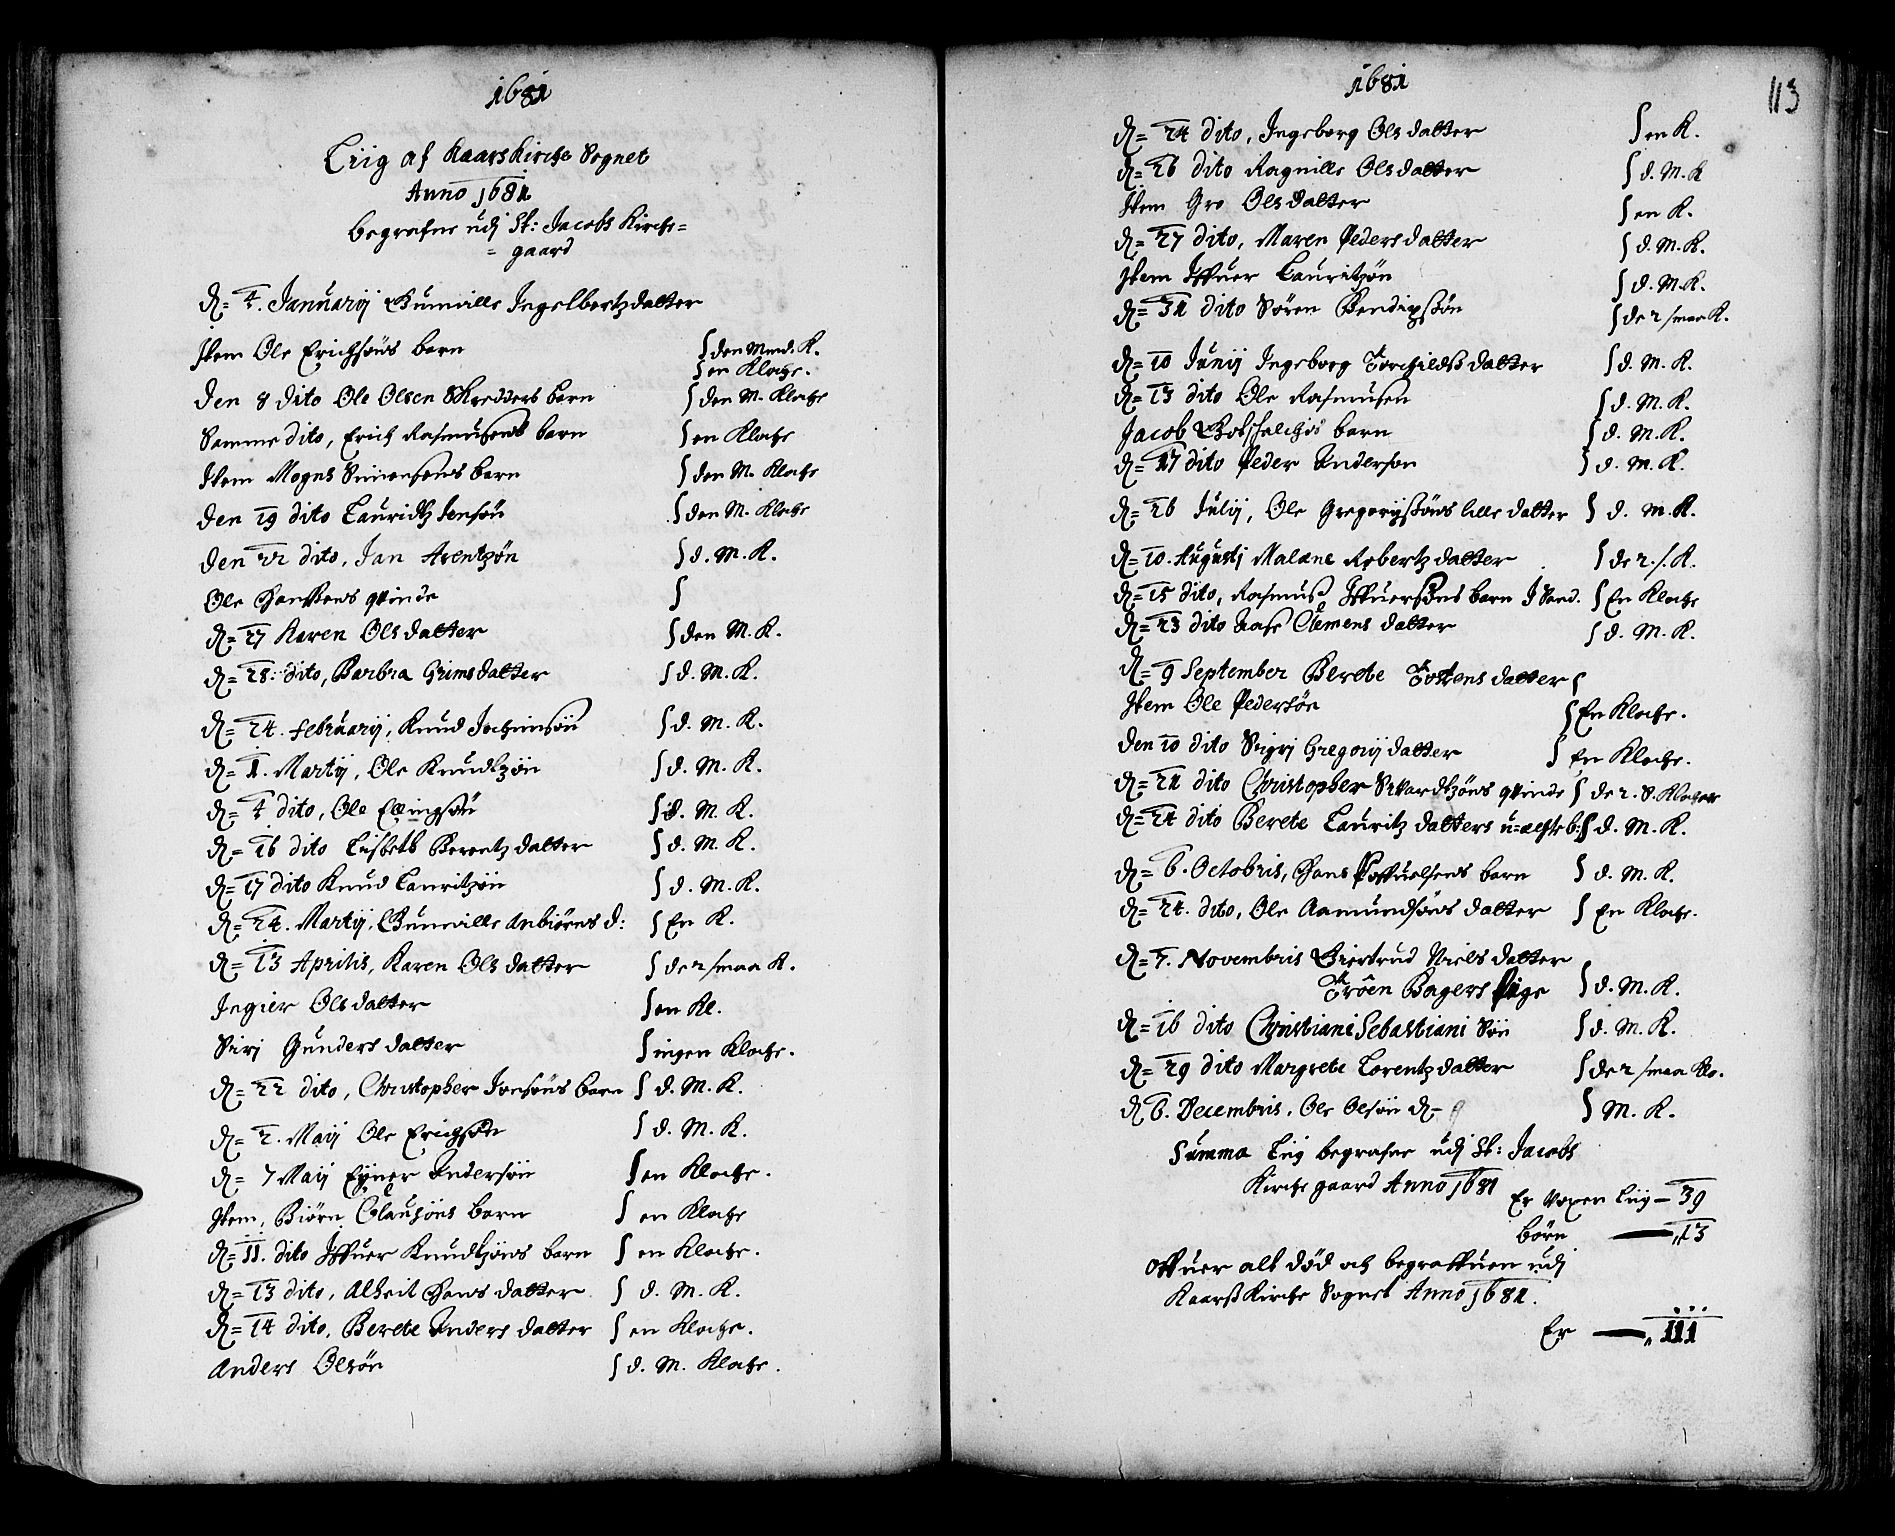 1681
Liig af Kaarskirche Sognet
Anno 1681
begrafne udj St: Jacobs Kirche=
= gaard
D= 4. Januarij Gunnille Ingelbertzdatter
Item Ole Erichsøns barn ∫ den Mind. K.
∫ en Kloche.
Den 8 dito Ole Olsen Skredders barn ∫ den M. Kloche
Samme dito, Erich Rasmusens barn ∫ en Kloche
Item Mogns Simensens barn ∫ den M. Kloche
Den 19 dito Lauridtz Jensøn ∫ den M. Kloche
Den 22 dito, Jan Arentzøn ∫ d. M. K.
Ole Hansens qvinde ∫
D= 27 Karen Olsdatter ∫ den M. K.
D= 28: dito, Barbra Grimsdatter ∫ d. M. K.
D= 24. februarij, Knud Jochimsøn ∫ d. M. K.
D= 1. Martij, Ole Knudtzøn ∫ d. M. K.
D= 4 dito, Ole Ellingsøn ∫ d. M. K.
D= 16 dito Lisbeth Berentzdatter ∫ d. M. K.
D= 17 dito Knud Lauritzøn ∫ d. M. K.
D= 24. Martij, Gunnille Anbiørns d: ∫ En K.
D= 13 Aprilis, Karen Olsdatter ∫ de 2 smaa K.
Ingier Olsdatter ∫ en Kl.
Siri Gundersdatter ∫ ingen Kloche.
D= 22 dito, Christopher Jonsøns barn ∫ d. M. K.
D= 2. Maij Ole Erichsøn ∫ d. M. K.
D= 7 Maij Eyner Andersøn ∫ en Kloche.
Item, Biørn Clausøns barn ∫ en Kloche
D= 11. dito Iffuer Knudtzøns barn ∫ en Kloche.
D= 13 dito, Alheit Hansdatter ∫ d. M. K.
D= 14 dito, Berete Andersdatter ∫ en Kloche.
Anders Olsøn ∫ d. M. Kloche.
1681
113
D= 24 dito, Ingeborg Olsdatter ∫ en K.
D= 26 dito Ragnille Olsdatter ∫ d. M. K
Item Gro Olsdatter ∫ en K.
D= 27 dito, Maren Pedersdatter ∫ d. M. K.
Item Iffuer Lauritzøn ∫ d. M. K.
D= 31 dito Søren Bendixsøn ∫ de 2 smaa K.
D= 10 Junij Ingeborg Torchildsdatter ∫ d. M. K.
D= 13 dito Ole Rasmusen ∫ d. M. K.
Jacob Gotschalchs barn ∫ d. M. K.
D= 17 dito Peder Anderson ∫ d. M. K.
D= 26 Julij, Ole Gregorijsøns lille datter ∫ d. M. K.
D= 10. Augustj Malene Robertzdatter ∫ de 2. s. K.
D= 15 dito, Rasmus Iffuersøns barn J Sand. ∫ En Kloche
D= 23 dito Aase Clemensdatter ∫ d. M. K.
D= 9 September Berete Tostensdatter ∫
Item Ole Pedersøn ∫ En Kloche.
Den 10 dito Sigrj Gregorijdatter ∫ En Kloche.
D= 21 dito Christopher Sivardtzøns qvinde ∫ de 2. S. Klocher
D= 24 dito Berete Lauritzdatters u=achte b: ∫ d. M. K.
D= 6. Octobris, Hans Poffuelsens barn ∫ d. M. K.
D= 24. dito, Ole Aamundsøns datter ∫ En Kloche.
D= 7. Novembris Giertrud Nielsdatter
Trøen Bagers Pige ∫ d. M. K.
D= 16 dito Christiani Sebastiani Søn ∫ d. M. K.
D= 29 dito Margrete Lorentzdatter ∫ de 2 smaa Klo.
D 6. Decembris, Ole Olsøn ∫ M. K.
Summa Liig begrafne udj St: Jacobs
Kirche gaard Anno 1681
Er Voxen Liig — 39
Børn — 13
Offuer alt død och begraffuen udj
Kaarskirche Sognet Anno 1681.
Er — 111